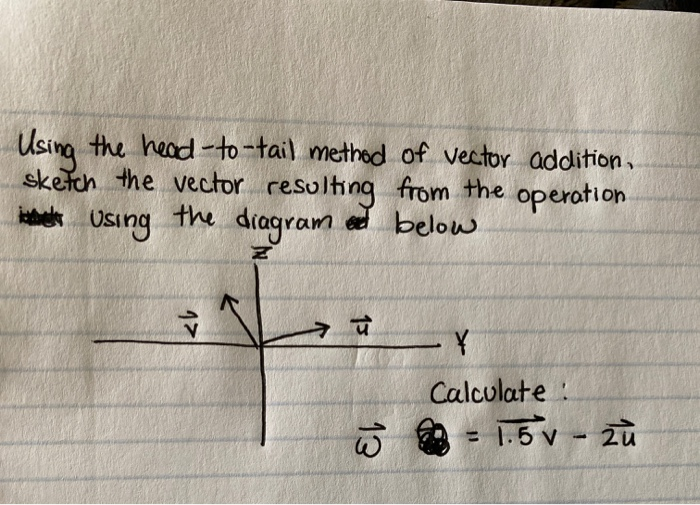 Using the head-to-tail method of vector addition,
sketch the vector resulting from the operation
using the diagram below
Z
v⃗
u⃗
Y
Calculate :
w⃗ = 1.5v⃗ - 2u⃗